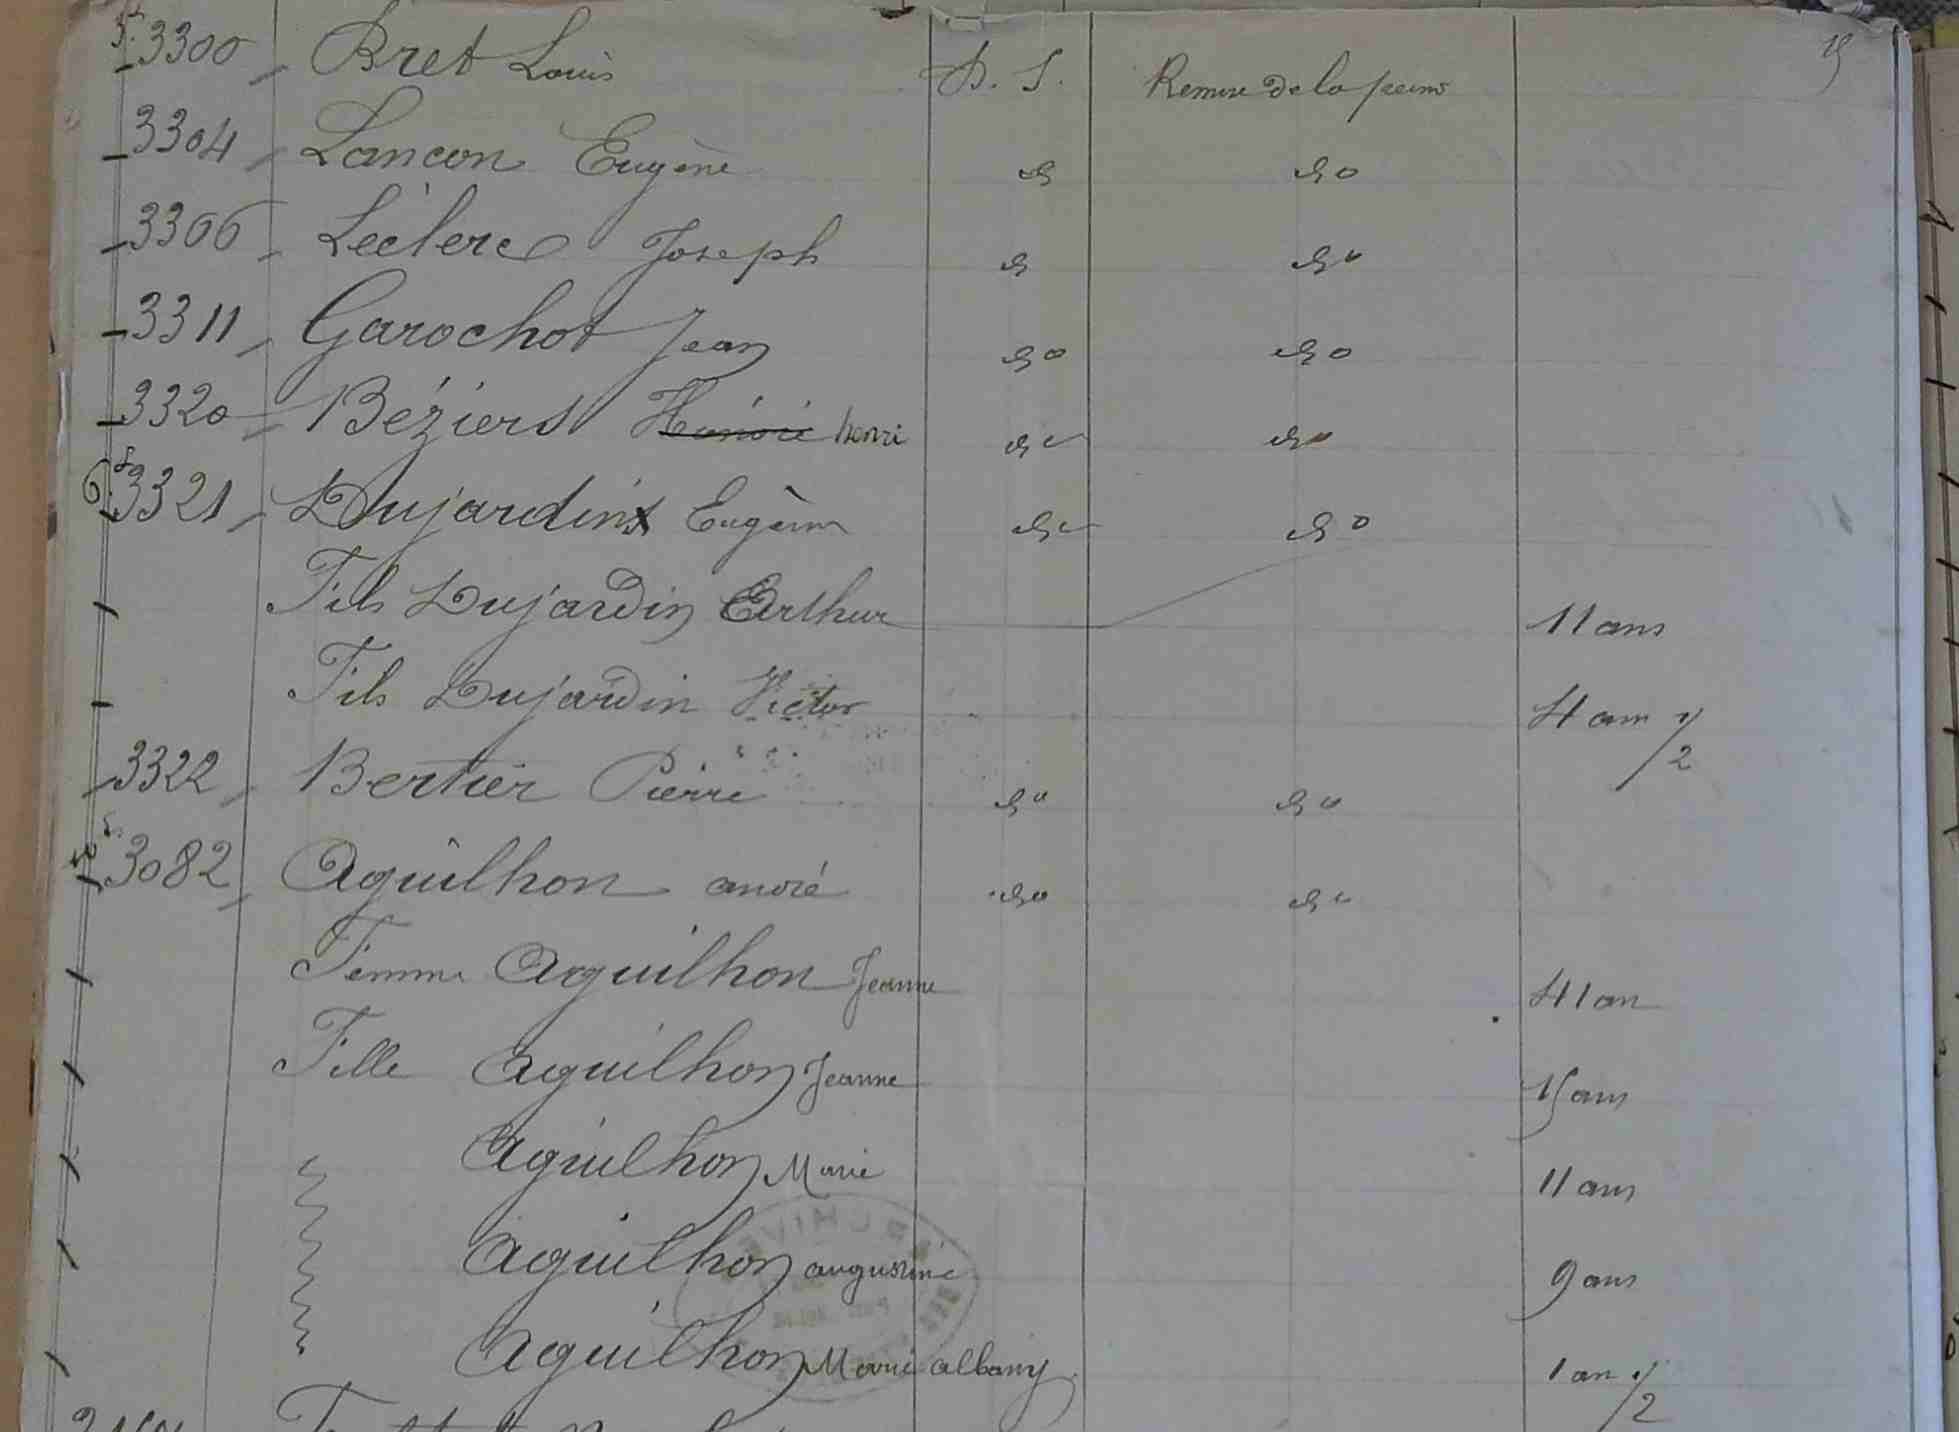 15
3300 Bret Louis D. S. Remise de la peine
3304 Lançon Eugène do do
3306 Léclerc Joseph do do
3311 Garochot Jean do do
3320 Béziers Honoré henri do do
3321 Dujardin Eugène do do
Fils Dujardin Arthur 11 ans
Fils Dujardin Victor 4 ans 1/2
3322 Bertier Pierre do do
3082 Aguilhon andré do do
Femme Aguilhon Jeanne 41 an
Fille Aguilhon Jeanne 15 ans
Aguilhon Marie 11 ans
Aguilhon augustine 9 ans
Aguilhon Marie albany 1 an 1/2